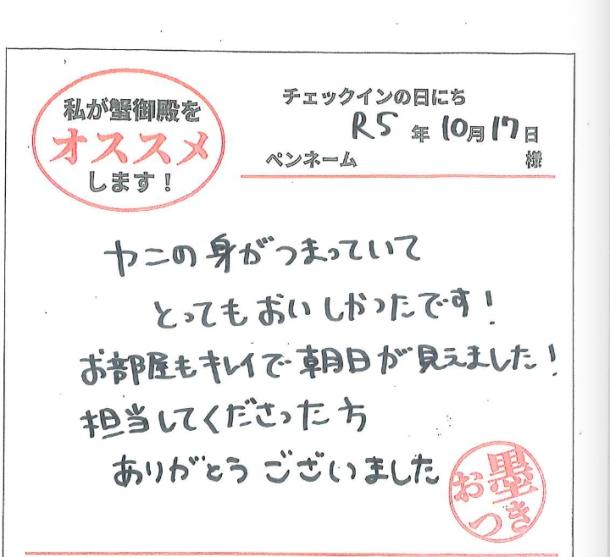 私が蟹御殿を
オススメ
します！
チェックインの日にち
R5年10月17日
ペンネーム 様
カニの身がつまっていて
とってもおいしかったです！
お部屋もキレイで朝日が見えました！
担当してくださった方
ありがとうございました
お墨
つき